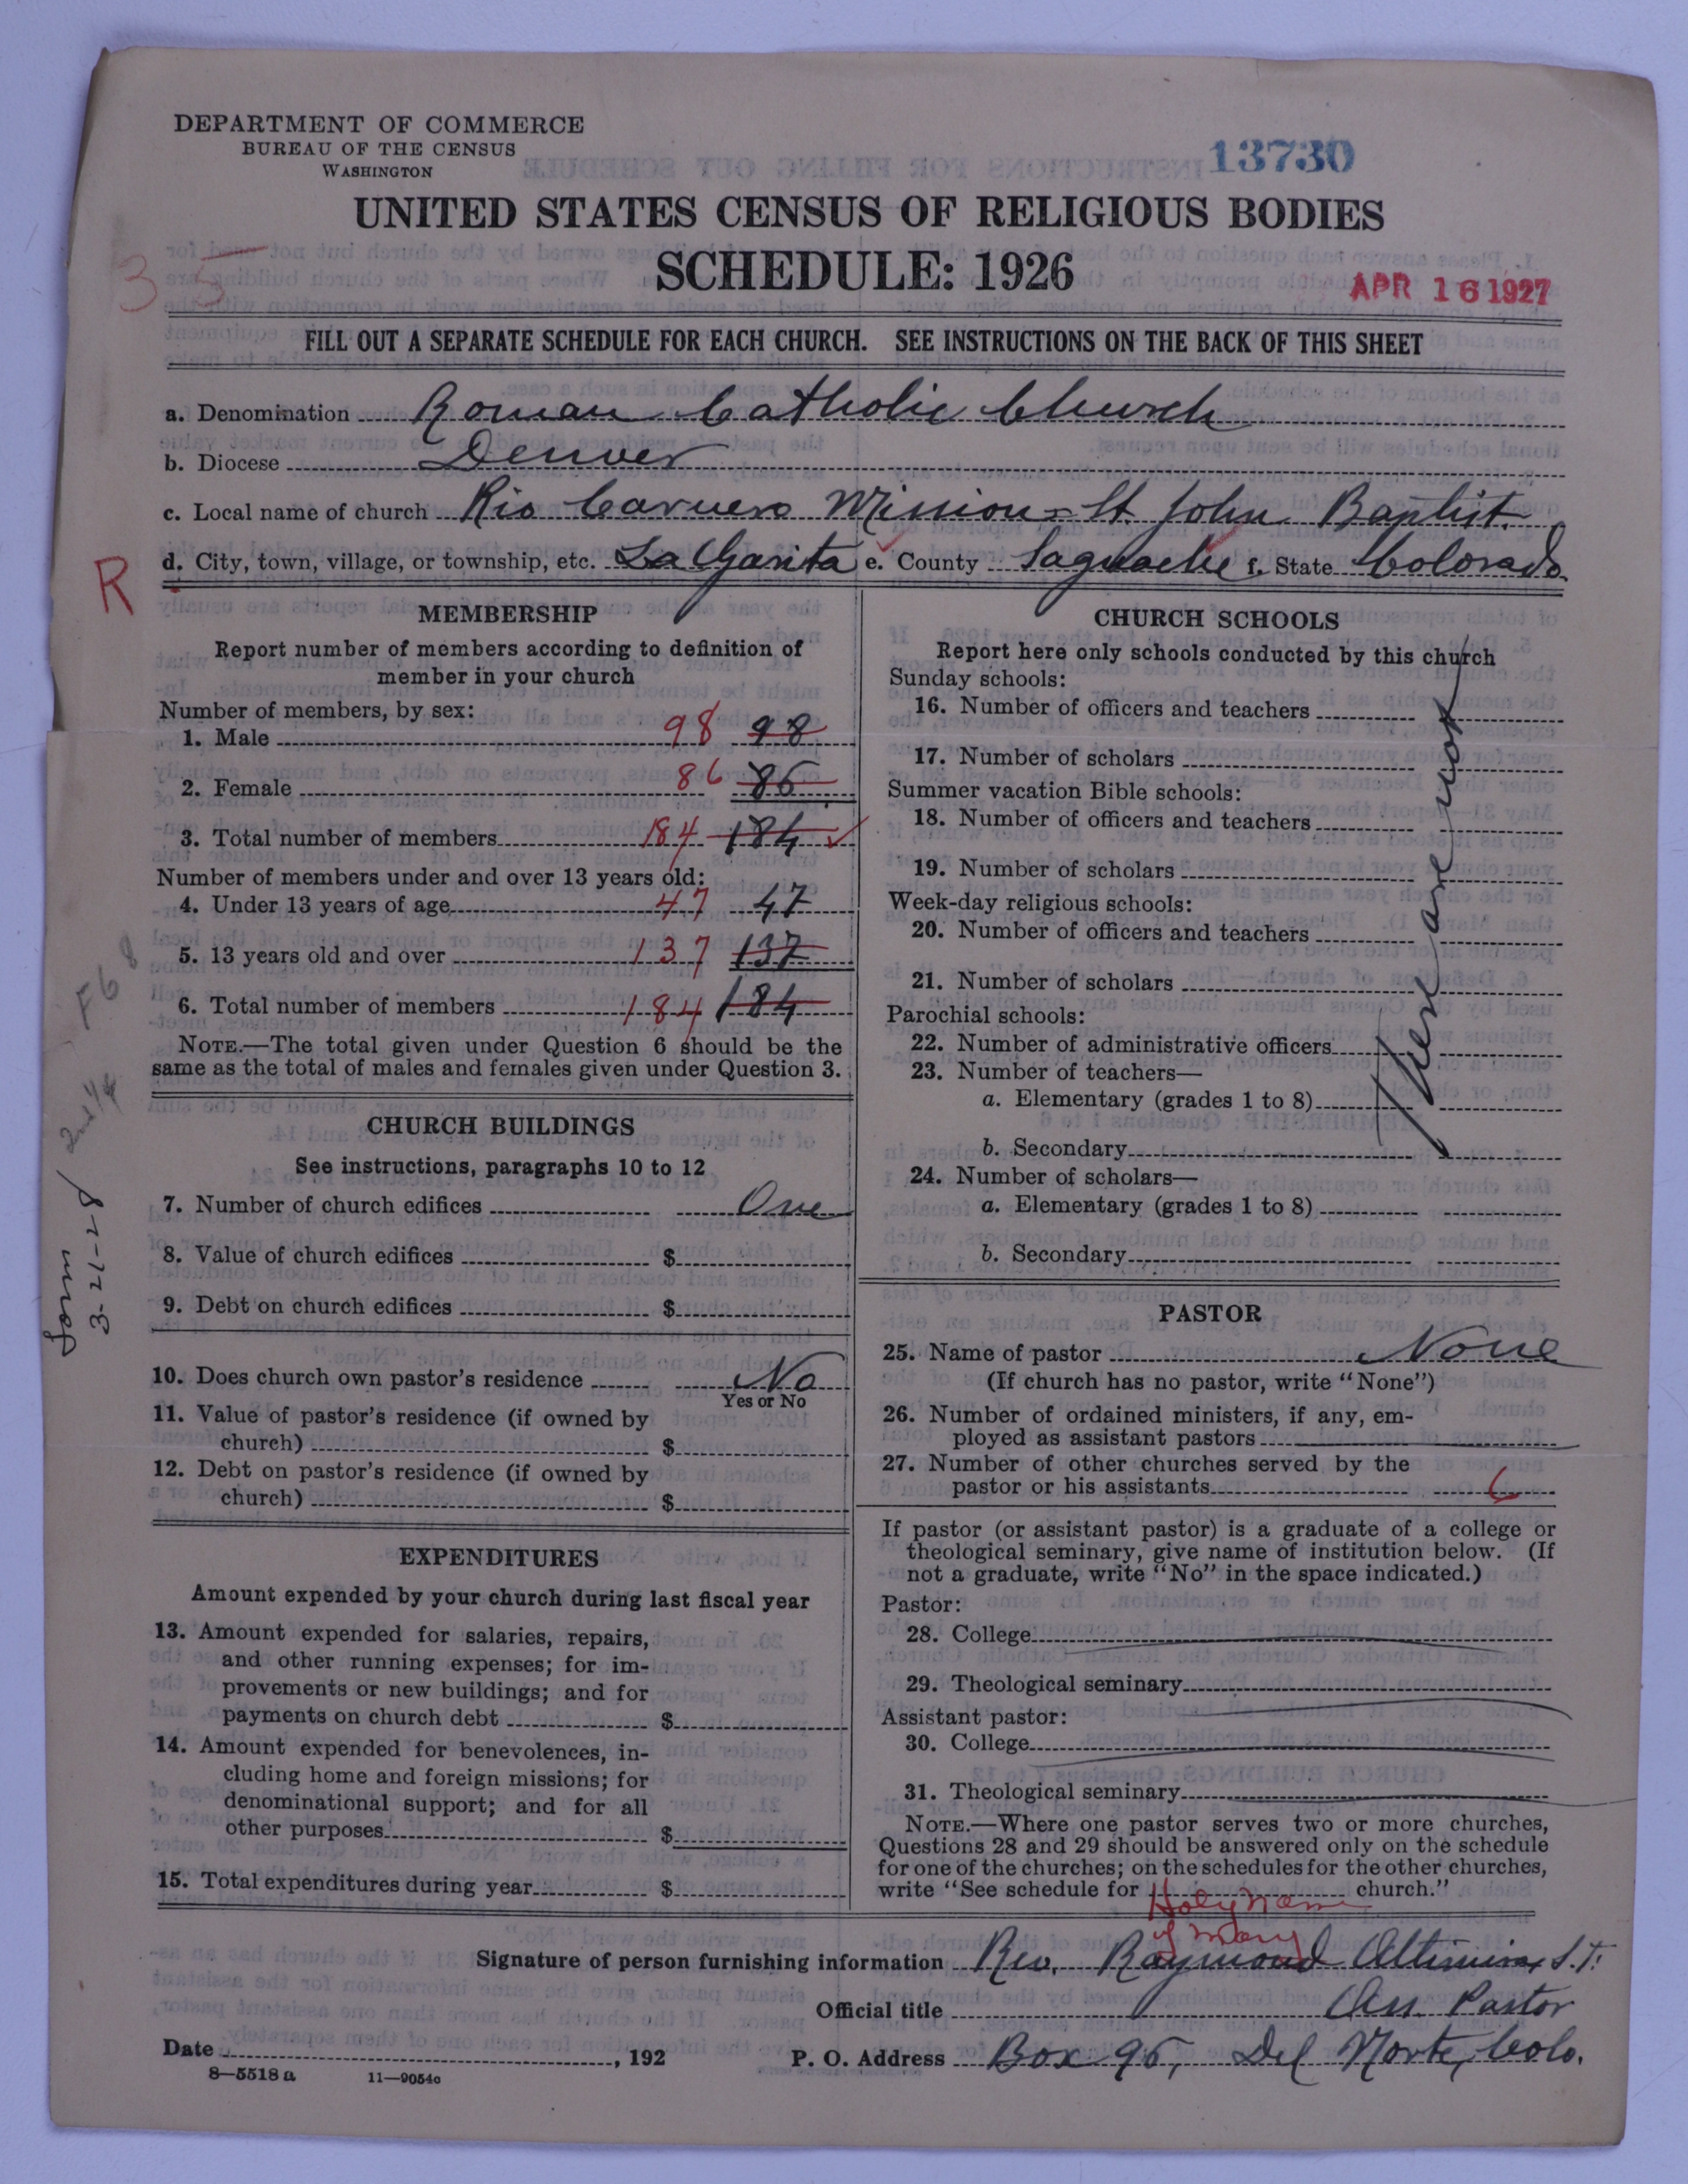 DEPARTMENT OF COMMERCE
BUREAU OF THE CENSUS
WASHINGTON
13730
UNITED STATES CENSUS OF RELIGIOUS BODIES
SCHEDULE: 1926
35
APR 16 1927
FILL OUT A SEPARATE SCHEDULE FOR EACH CHURCH. SEE INSTRUCTIONS ON THE BACK OF THIS SHEET
a. Denomination Roman Catholic Church
b. Diocese Denver
c. Local name of church Rio Carnero Mission = St. John Baptist.
R
d. City, town, village, or township, etc. La Garita e. County Saguache f. State Colorado.
MEMBERSHIP
Report number of members according to definition of
member in your church
Number of members, by sex:
1. Male 98 98
2. Female 86 86
3. Total number of members 184 184
Number of members under and over 13 years old:
4. Under 13 years of age 47 47
5. 13 years old and over 137 137
6. Total number of members 184 184
NOTE.—The total given under Question 6 should be the
same as the total of males and females given under Question 3.
CHURCH BUILDINGS
See instructions, paragraphs 10 to 12
7. Number of church edifices One
8. Value of church edifices $
9. Debt on church edifices $
10. Does church own pastor's residence No
Yes or No
11. Value of pastor's residence (if owned by
church) $
12. Debt on pastor's residence (if owned by
church) $
EXPENDITURES
Amount expended by your church during last fiscal year
13. Amount expended for salaries, repairs,
and other running expenses; for im-
provements or new buildings; and for
payments on church debt $
14. Amount expended for benevolences, in-
cluding home and foreign missions; for
denominational support; and for all
other purposes $
15. Total expenditures during year $
F68
3-21-28
CHURCH SCHOOLS
Report here only schools conducted by this church
Sunday schools:
16. Number of officers and teachers
17. Number of scholars
Summer vacation Bible schools:
18. Number of officers and teachers
19. Number of scholars
Week-day religious schools:
20. Number of officers and teachers
21. Number of scholars
Parochial schools:
22. Number of administrative officers
23. Number of teachers—
a. Elementary (grades 1 to 8)
b. Secondary
24. Number of scholars—
a. Elementary (grades 1 to 8)
b. Secondary
There are non
PASTOR
25. Name of pastor None
(If church has no pastor, write "None")
26. Number of ordained ministers, if any, em-
ployed as assistant pastors
27. Number of other churches served by the
pastor or his assistants 6
If pastor (or assistant pastor) is a graduate of a college or
theological seminary, give name of institution below. (If
not a graduate, write "No" in the space indicated.)
Pastor:
28. College
29. Theological seminary
Assistant pastor:
30. College
31. Theological seminary
NOTE.—Where one pastor serves two or more churches,
Questions 28 and 29 should be answered only on the schedule
for one of the churches; on the schedules for the other churches,
write "See schedule for Holy Name of Mary church."
Signature of person furnishing information Rev. Raymond Altimiras S.T.
Official title Ass Pastor
Date , 192
P. O. Address Box 96, Del Norte, Colo.
8—5518 a 11—9054c